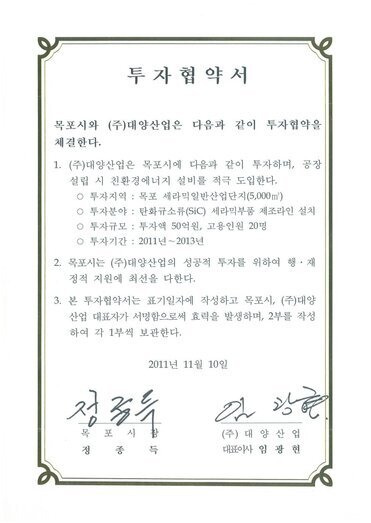 투자협약서
목포시와 (주)대양산업은 다음과 같이 투자협약을
체결한다.
1. (주)대양산업은 목포시에 다음과 같이 투자하며, 공장
설립 시 친환경에너지 설비를 적극 도입한다.
○ 투자지역 : 목포 세라믹일반산업단지(5,000㎡)
○ 투자분야 : 탄화규소류(SiC) 세라믹부품 제조라인 설치
○ 투자규모 : 투자액 50억원, 고용인원 20명
○ 투자기간 : 2011년~2013년
2. 목포시는 (주)대양산업의 성공적 투자를 위하여 행·재
정적 지원에 최선을 다한다.
3. 본 투자협약서는 표기일자에 작성하고 목포시, (주)대양
산업 대표자가 서명함으로써 효력을 발생하며, 2부를 작성
하여 각 1부씩 보관한다.
2011년 11월 10일
정종득 임광현
목포시장 (주)대양산업
정종득 대표이사 임광현